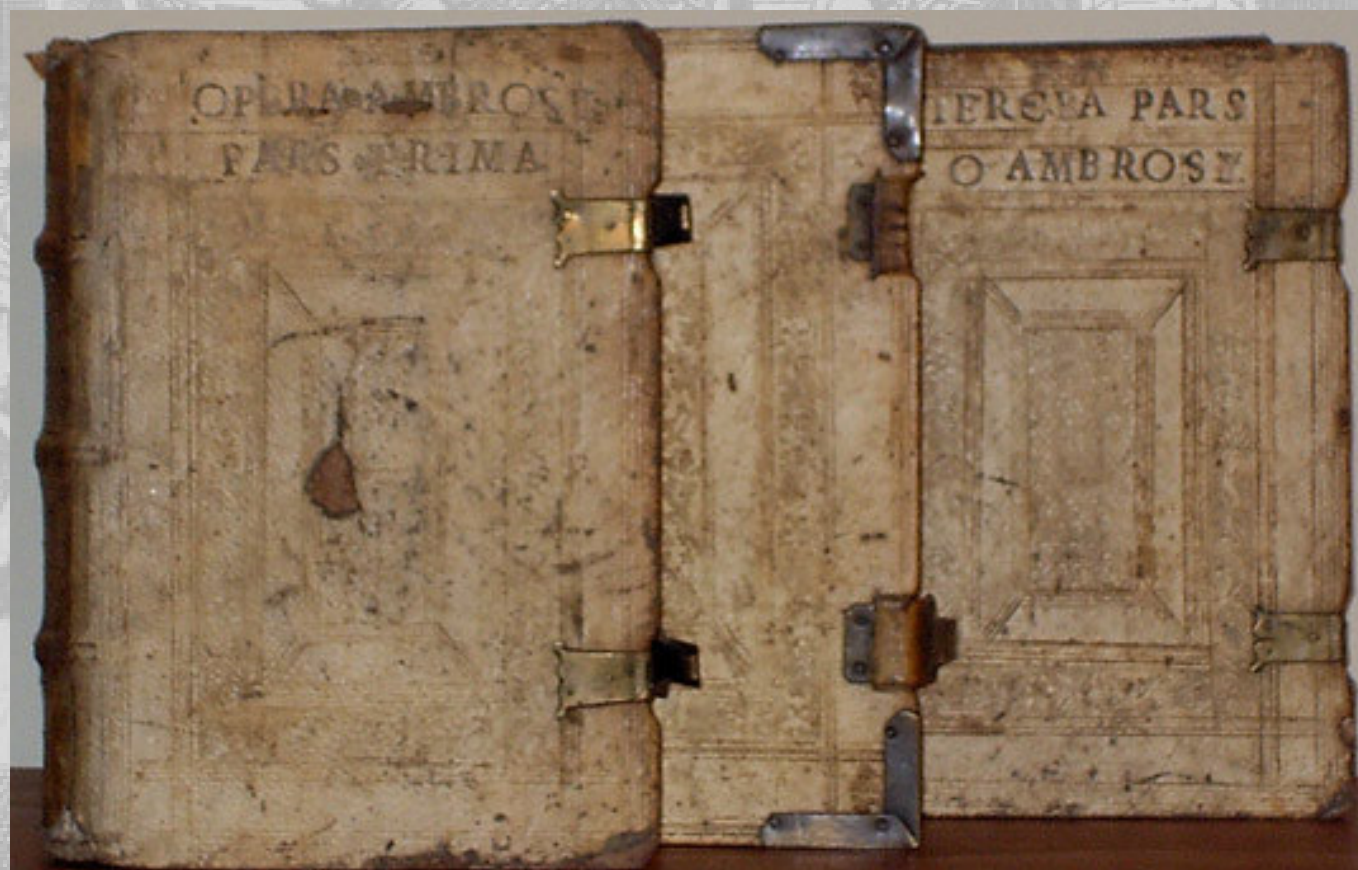 OPERA AMBROSII
PARS PRIMA
TERCIA PARS
O AMBROSII